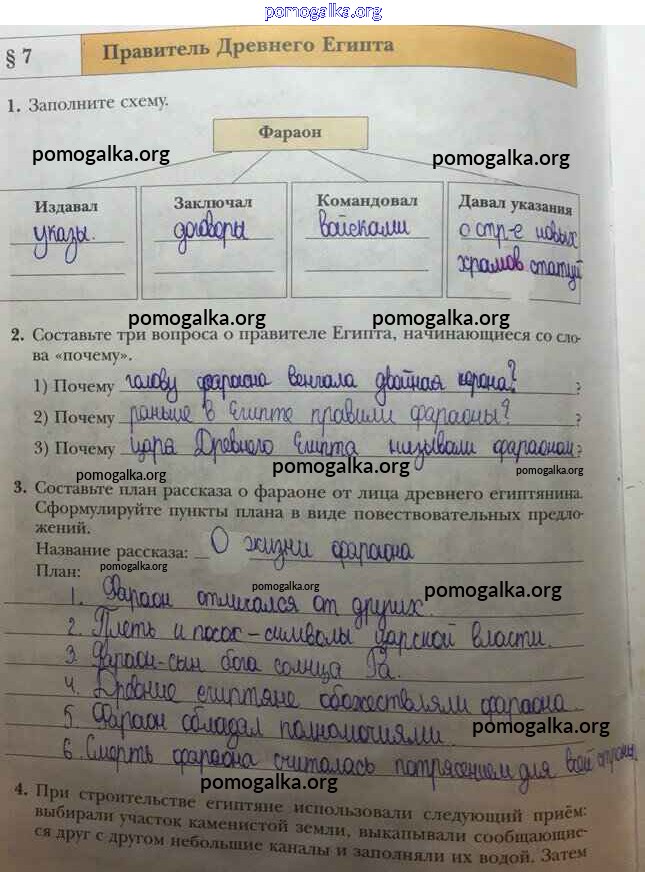 pomogalka.org
§ 7 Правитель Древнего Египта
1. Заполните схему.
Фараон
pomogalka.org pomogalka.org
Издавал Заключал Командовал Давал указания
указы. договоры войсками о стр-е новых
храмов статуй
pomogalka.org pomogalka.org
2. Составьте три вопроса о правителе Египта, начинающиеся со сло-
ва «почему».
1) Почему голову фараона венчала двойная корона? ?
2) Почему раньше в Египте правили фараоны? ?
3) Почему царя Древнего Египта называли фараоном ?
pomogalka.org pomogalka.org pomogalka.org
3. Составьте план рассказа о фараоне от лица древнего египтянина.
Сформулируйте пункты плана в виде повествовательных предло-
жений.
Название рассказа: О жизни фараона
План: pomogalka.org
pomogalka.org pomogalka.org
1. Фараон отличался от других.
2. Плеть и посох - символы царской власти.
3. Фараон-сын бога солнца Ра.
4. Древние египтяне обожествляли фараона.
5. Фараон обладал полномочиями.
pomogalka.org
6. Смерть фараона считалась потрясением для всей страны.
pomogalka.org
4. При строительстве египтяне использовали следующий приём:
выбирали участок каменистой земли, выкапывали сообщающие-
ся друг с другом небольшие каналы и заполняли их водой. Затем